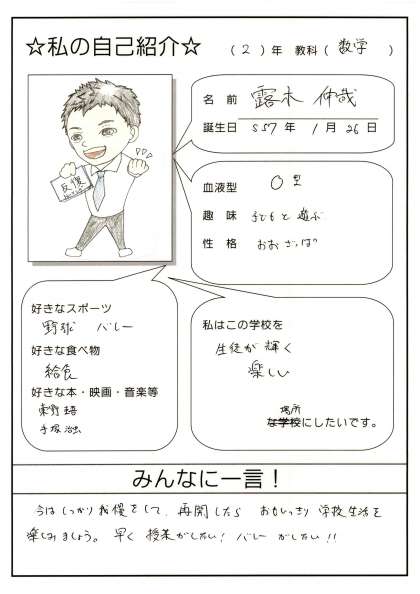 ☆私の自己紹介☆ (2)年 教科(数学)
名前 露木 伸哉
誕生日 S57年 1月26日
反復
血液型 O型
趣味 子どもと遊ぶ
性格 おおざっぱ
好きなスポーツ
野球 バレー
好きな食べ物
給食
好きな本・映画・音楽等
東野圭吾
手塚治虫
私はこの学校を
生徒が輝く
楽しい
場所
な学校にしたいです。
みんなに一言!
今はしっかり我慢をして、再開したら おもいっきり 学校生活を
楽しみましょう。早く 授業がしたい! バレーがしたい!!